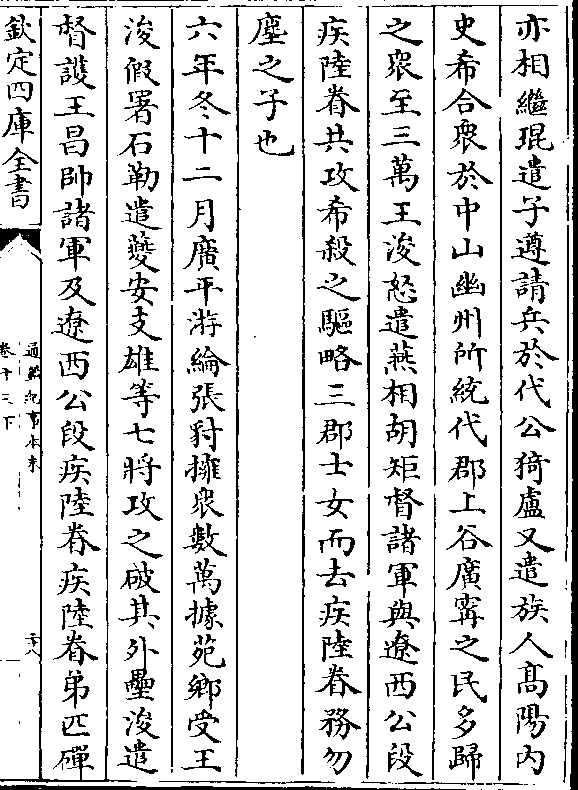 亦相繼琨遣子遵請兵於代公猗盧又遣族人高陽内
史希合衆於中山幽州所統代郡上谷廣甯之民多歸
之衆至三萬王浚怒遣燕相胡矩督諸軍與遼西公段
疾陸眷共攻希殺之驅略三郡士女而去疾陸眷務勿
塵之子也
六年冬十二月廣平游綸張豺擁衆數萬據苑鄉受王
浚假署石勒遣夔安支雄等七將攻之破其外壘浚遣
督護王昌帥諸軍及遼西公段疾陸眷疾陸眷弟匹磾
欽定四庫全書
通鑑紀事本末
卷十三下
三八